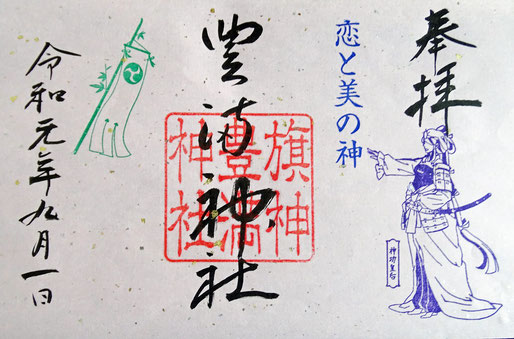 奉拝
恋と美の神
神功皇后
豊満神社
旗神
豊満
神社
令和元年九月一日